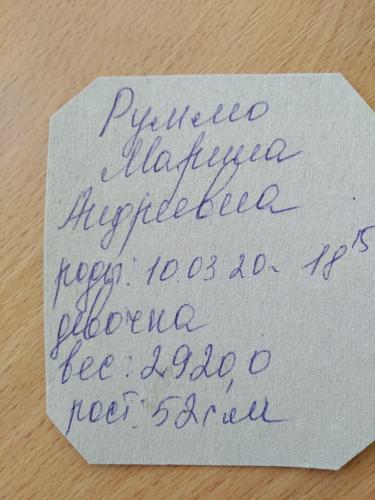 Руммо
Марина
Андреевна
роды: 10.03.20г 18 15
девочка
вес: 2920,0
рост: 52 см